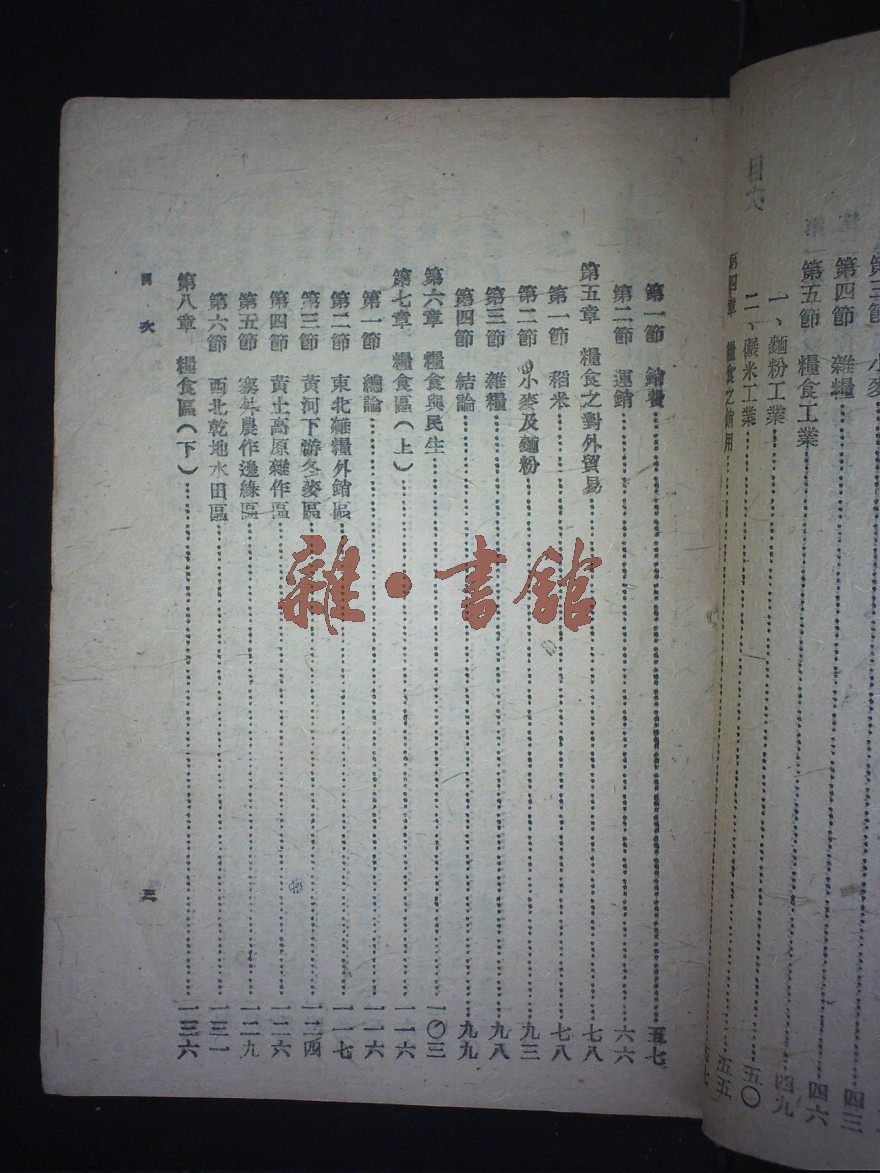 目次
第三節 小麥
第四節 雜糧……四三
第五節 糧食工業……四六
一、麵粉工業……四九
二、碾米工業……五〇
第四章 糧食之銷用……五五
第一節 銷費……五七
第二節 運銷……六六
第五章 糧食之對外貿易……七八
第一節 稻米……七八
第二節 小麥及麵粉……九三
第三節 雜糧……九八
第四節 結論……九九
第六章 糧食與民生……一〇三
第七章 糧食區(上)……一一六
第一節 總論……一一六
第二節 東北雜糧外銷區……一一七
第三節 黃河下游冬麥區……一二四
第四節 黃土高原雜作區……一二六
第五節 塞外農作邊緣區……一二九
第六節 西北乾地水田區……一三一
第八章 糧食區(下)……一三六
目次
三
雜·書館